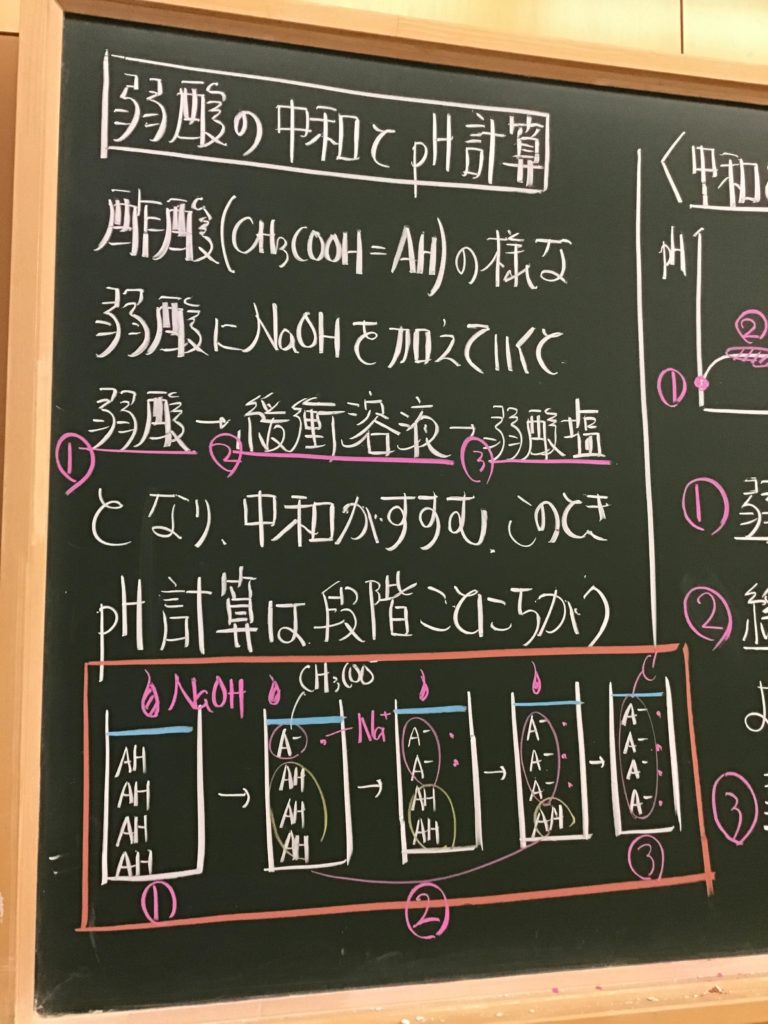 弱酸の中和とpH計算
酢酸(CH3COOH=AH)の様な
弱酸にNaOHを加えていくと
①弱酸→②緩衝溶液→③弱酸塩
となり、中和がすすむ。このとき
pH計算は段階ごとにちがう
NaOH CH3COO-
A- Na+
AH
AH
AH
AH
→
A-
AH
AH
AH
→
A-
A-
AH
AH
→
A-
A-
A-
AH
→
A-
A-
A-
A-
① ② ③
〈中和
pH
②
①
①弱
②緩
よ
③